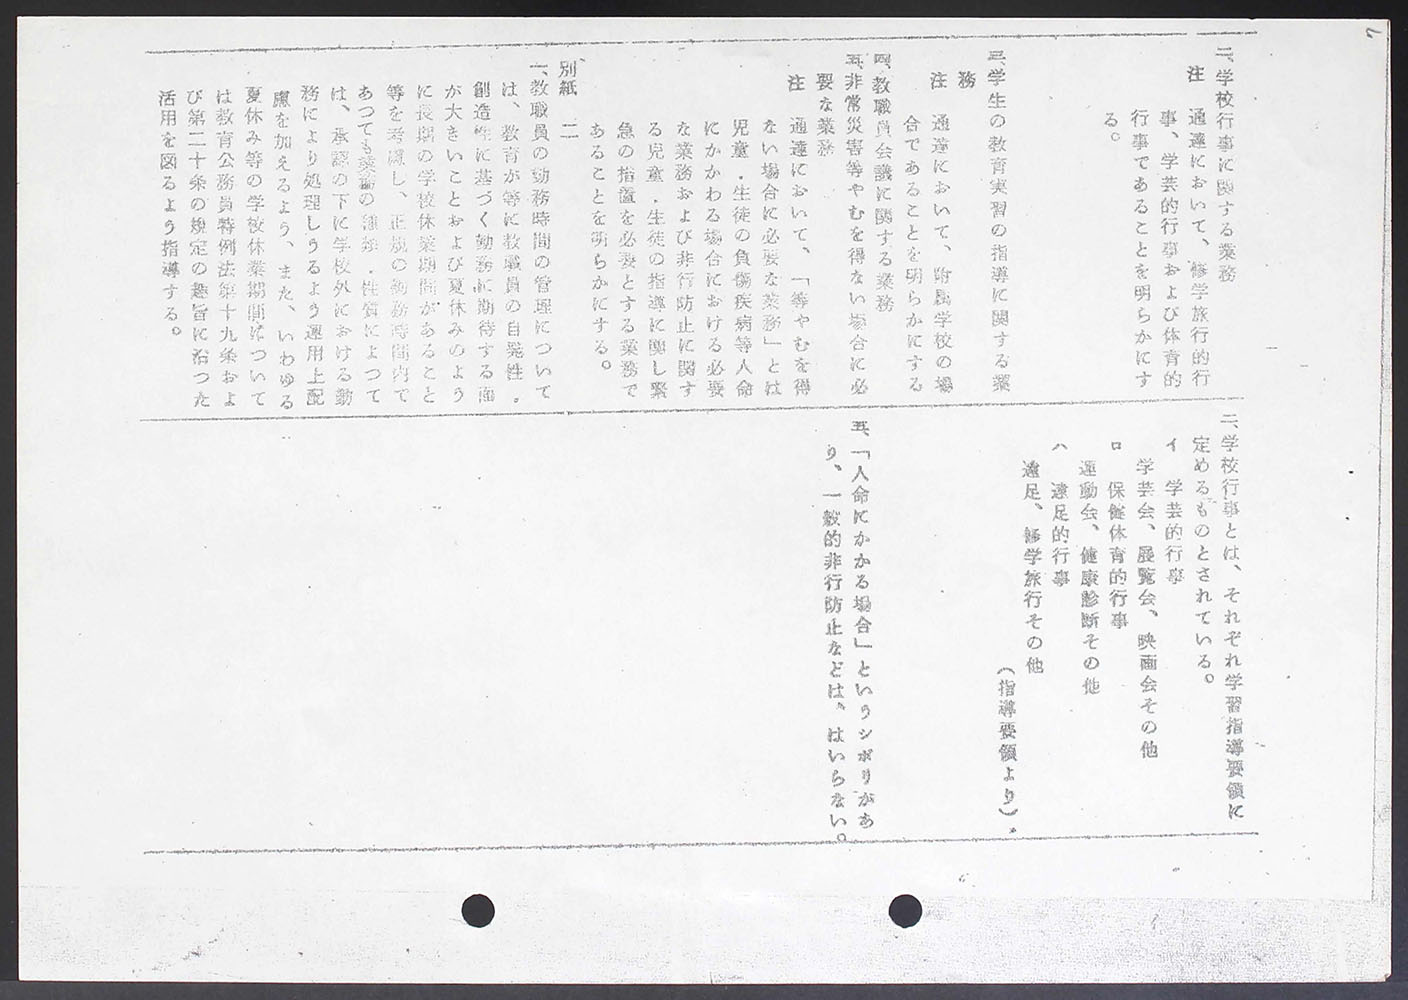 二、学校行事に関する業務
注　通達において、修学旅行的行
事、学芸的行事および体育的
行事であることを明らかにす
る。
三、学生の教育実習の指導に関する業
務
注　通達において、附属学校の場
合であることを明らかにする
四、教職員会議に関する業務
五、非常災害等やむを得ない場合に必
要な業務
注　通達において、「等やむを得
ない場合に必要な業務」とは
児童・生徒の負傷疾病等人命
にかかわる場合における必要
な業務および非行防止に関す
る児童・生徒の指導に関し緊
急の措置を必要とする業務で
あることを明らかにする。
別紙　二
一、教職員の勤務時間の管理について
は、教育が等に教職員の自発性・
創造性に基づく勤務に期待する面
が大きいことおよび夏休みのよう
に長期の学校休業期間があること
等を考慮し、正規の勤務時間内で
あつても業務の種類・性質によつて
は、承認の下に学校外における勤
務により処理しうるよう運用上配
慮を加えるよう、また、いわゆる
夏休み等の学校休業期間について
は教育公務員特例法第十九条およ
び第二十条の規定の趣旨に沿つた
活用を図るよう指導する。
二、学校行事とは、それぞれ学習指導要領に
定めるものとされている。
イ　学芸的行事
学芸会、展覧会、映画会その他
ロ　保健体育的行事
運動会、健康診断その他
ハ　遠足的行事
遠足、修学旅行その他
（指導要領より）。
五、「人命にかかる場合」というシボリがあ
り、一般的非行防止などは、はいらない。